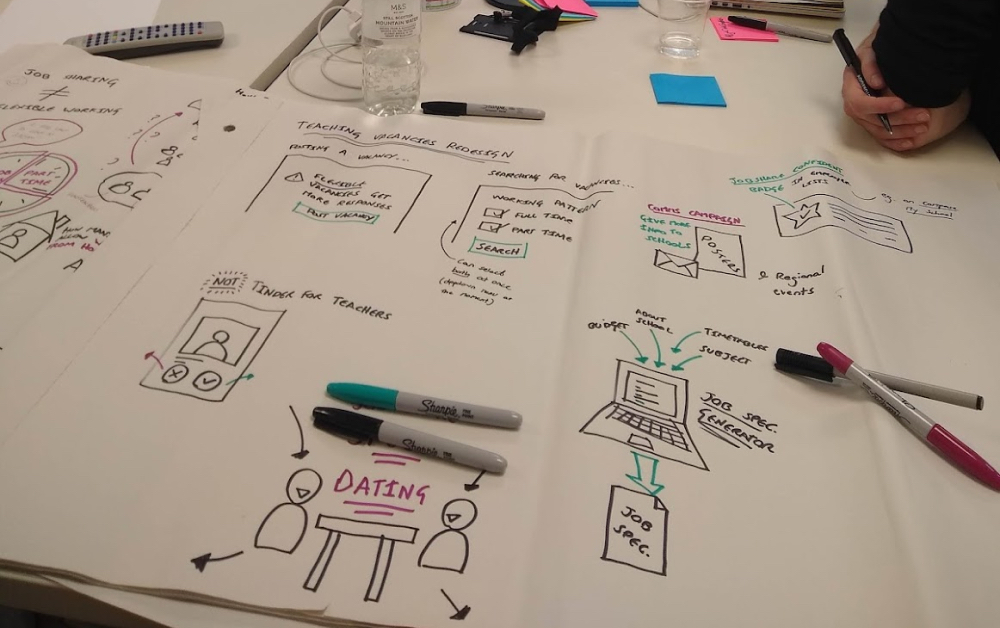 M&S
MOUNTAIN WATER
JOB SHARING
≠
FLEXIBLE WORKING
PART-
TIME
FROM HO
A
TEACHING VACANCIES REDESIGN
POSTING A VACANCY...
FLEXIBLE
VACANCIES GET
MORE RESPONSES
POST VACANCY
SEARCHING FOR VACANCIES...
WORKING PATTERN
FULL TIME
PART TIME
SEARCH
Can select
both at once
(dropdown now at
the moment)
COMMS CAMPAIGN
GIVE MORE
INFO TO
SCHOOLS
POSTERS
& Regional
events
JOBSHARE CONFIDENT
BADGE IN EMPLOYER
LISTS
eg. on Compare
My School
NOT
TINDER FOR TEACHERS
DATING
BUDGET
ABOUT
SCHOOL
TIMETABLES
SUBJECT
JOB SPEC.
GENERATOR
JOB
SPEC.
Sharpie
Sharpie